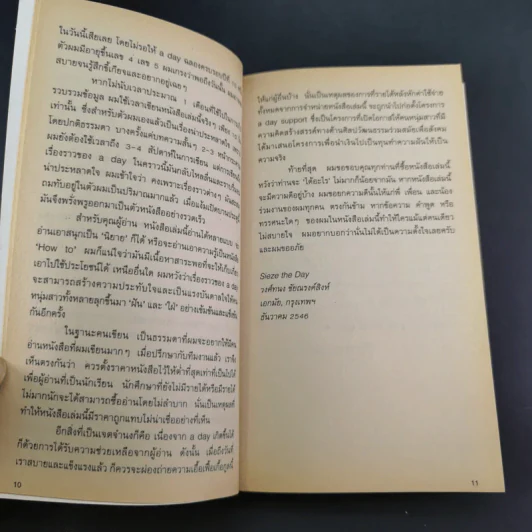 ในวันนี้เสียเลย โดยไม่รอให้ a day ฉลองครบรอบปีที่
ตัวผมมีอายุขึ้นเลข 4 เลข 5 ผมเกรงว่าพอถึงวันนั้น
สบายจนรู้สึกขี้เกียจและอยากอยู่เฉยๆ
หากไม่นับเวลาประมาณ 1 เดือนที่ใช้ไปในการ
รวบรวมข้อมูล ผมใช้เวลาเขียนหนังสือเล่มนี้จริงๆ เพียง
เท่านั้น ซึ่งสำหรับตัวผมเองแล้วเป็นเรื่องน่าประหลาดใจ
โดยปกติธรรมดา บางครั้งแค่บทความสั้นๆ 2-3 หน้า
ผมยังต้องใช้เวลาถึง 3-4 สัปดาห์ในการเขียน แต่การเขียน
เรื่องราวของ a day ในคราวนี้มันกลับไหลลื่นและราบรื่น
น่าประหลาดใจ ผมเข้าใจว่า คงเพราะเรื่องราวต่างๆ
ถมทับอยู่ในตัวผมเป็นปริมาณมากแล้ว เมื่อ
มันจึงพรั่งพรูออกมาเป็นตัวหนังสืออย่างรวดเร็ว
สำหรับคุณผู้อ่าน หนังสือเล่มนี้อ่านได้หลายแบบ
อ่านเอาสนุกเป็น 'นิยาย' ก็ได้ หรือจะอ่านเอาความรู้เป็นหนังสือ
'How to' ผมก็แน่ใจว่ามันมีเนื้อหาสาระพอที่จะให้เก็บเกี่ยว
เอาไปใช้ประโยชน์ได้ เหนืออื่นใด ผมหวังว่าเรื่องราวของ a day
จะสามารถสร้างความประทับใจและเป็นแรงบันดาลใจให้คน
หนุ่มสาวทั้งหลายลุกขึ้นมา 'ฝัน' และ 'ใฝ่' อย่างเข้มข้นและแข็งขัน
กันอีกครั้ง
ในฐานะคนเขียน เป็นธรรมดาที่ผมจะอยากให้มีคน
อ่านหนังสือที่ผมเขียนมากๆ เมื่อปรึกษากับทีมงานแล้ว เราจึง
เห็นตรงกันว่า ควรตั้งราคาหนังสือไว้ให้ต่ำที่สุดเท่าที่เป็นไปได้
เพื่อผู้อ่านที่เป็นนักเรียน นักศึกษาที่ยังไม่มีรายได้หรือมีรายได้
ไม่มากนักจะได้สามารถซื้ออ่านโดยไม่ลำบาก นั่นเป็นเหตุผลที่
ทำให้หนังสือเล่มนี้มีราคาถูกแทบไม่น่าเชื่ออย่างที่เห็น
อีกสิ่งที่เป็นเจตจำนงก็คือ เนื่องจาก a day เกิดขึ้นได้
ก็ด้วยการได้รับความช่วยเหลือจากผู้อ่าน ดังนั้น เมื่อถึงวันที่
เราสบายและแข็งแรงแล้ว ก็ควรจะผ่องถ่ายความเอื้อเฟื้อเกื้อกูลนี้
10
ให้แก่ผู้อื่นบ้าง นั่นเป็นเหตุผลของการที่รายได้หลังหักค่าใช้จ่าย
ทั้งหมดจากการจำหน่ายหนังสือเล่มนี้ จะถูกนำไปก่อตั้งโครงการ
a day support ซึ่งเป็นโครงการที่เปิดโอกาสให้คนหนุ่มสาวที่มี
ความคิดสร้างสรรค์ทางด้านศิลปวัฒนธรรมร่วมสมัยเพื่อสังคม
ได้มาเสนอโครงการเพื่อนำเงินไปเป็นทุนทำความฝันให้เป็น
ความจริง
ท้ายที่สุด ผมขอขอบคุณทุกท่านที่ซื้อหนังสือเล่มนี้
หวังว่าท่านจะ 'ได้อะไร' ไม่มากก็น้อยจากมัน หากหนังสือเล่มนี้
จะมีความดีอยู่บ้าง ผมขอยกความดีนั้นให้แก่พี่ เพื่อน และน้อง
ร่วมงานของผมทุกคน ตรงกันข้าม หากข้อความ คำพูด หรือ
ทรรศนะใดๆ ของผมในหนังสือเล่มนี้ทำให้ใครแม้แต่คนเดียว
ไม่สบายใจ ผมอยากบอกว่านั่นไม่ได้เป็นความตั้งใจเลยครับ
และผมขออภัย
Sieze the Day
วงศ์ทนง ชัยณรงค์สิงห์
เอกมัย, กรุงเทพฯ
ธันวาคม 2546
11